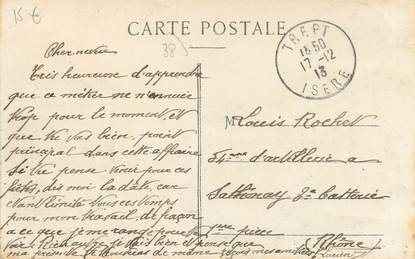 15 €
CARTE POSTALE
38
TREPT
13 50
17-12
13
ISERE
Cher neveu
Très heureuse d'apprendre
que ce métier ne n'ennuie
trop pour le moment et
que tu vas bien, point
principal dans cette affaire
Si tu pense venir pour ces
fêtes, dis moi la date, car
étant limité tous ces temps
pour mon travail de façon
a ce que je me range pour te
voir. Richaud je vais bien et pense que
ma présente te de même
M Louis Rochet
54ème d'artillerie a
Sathonay 3a batterie
1ère pièce
(Rhône)